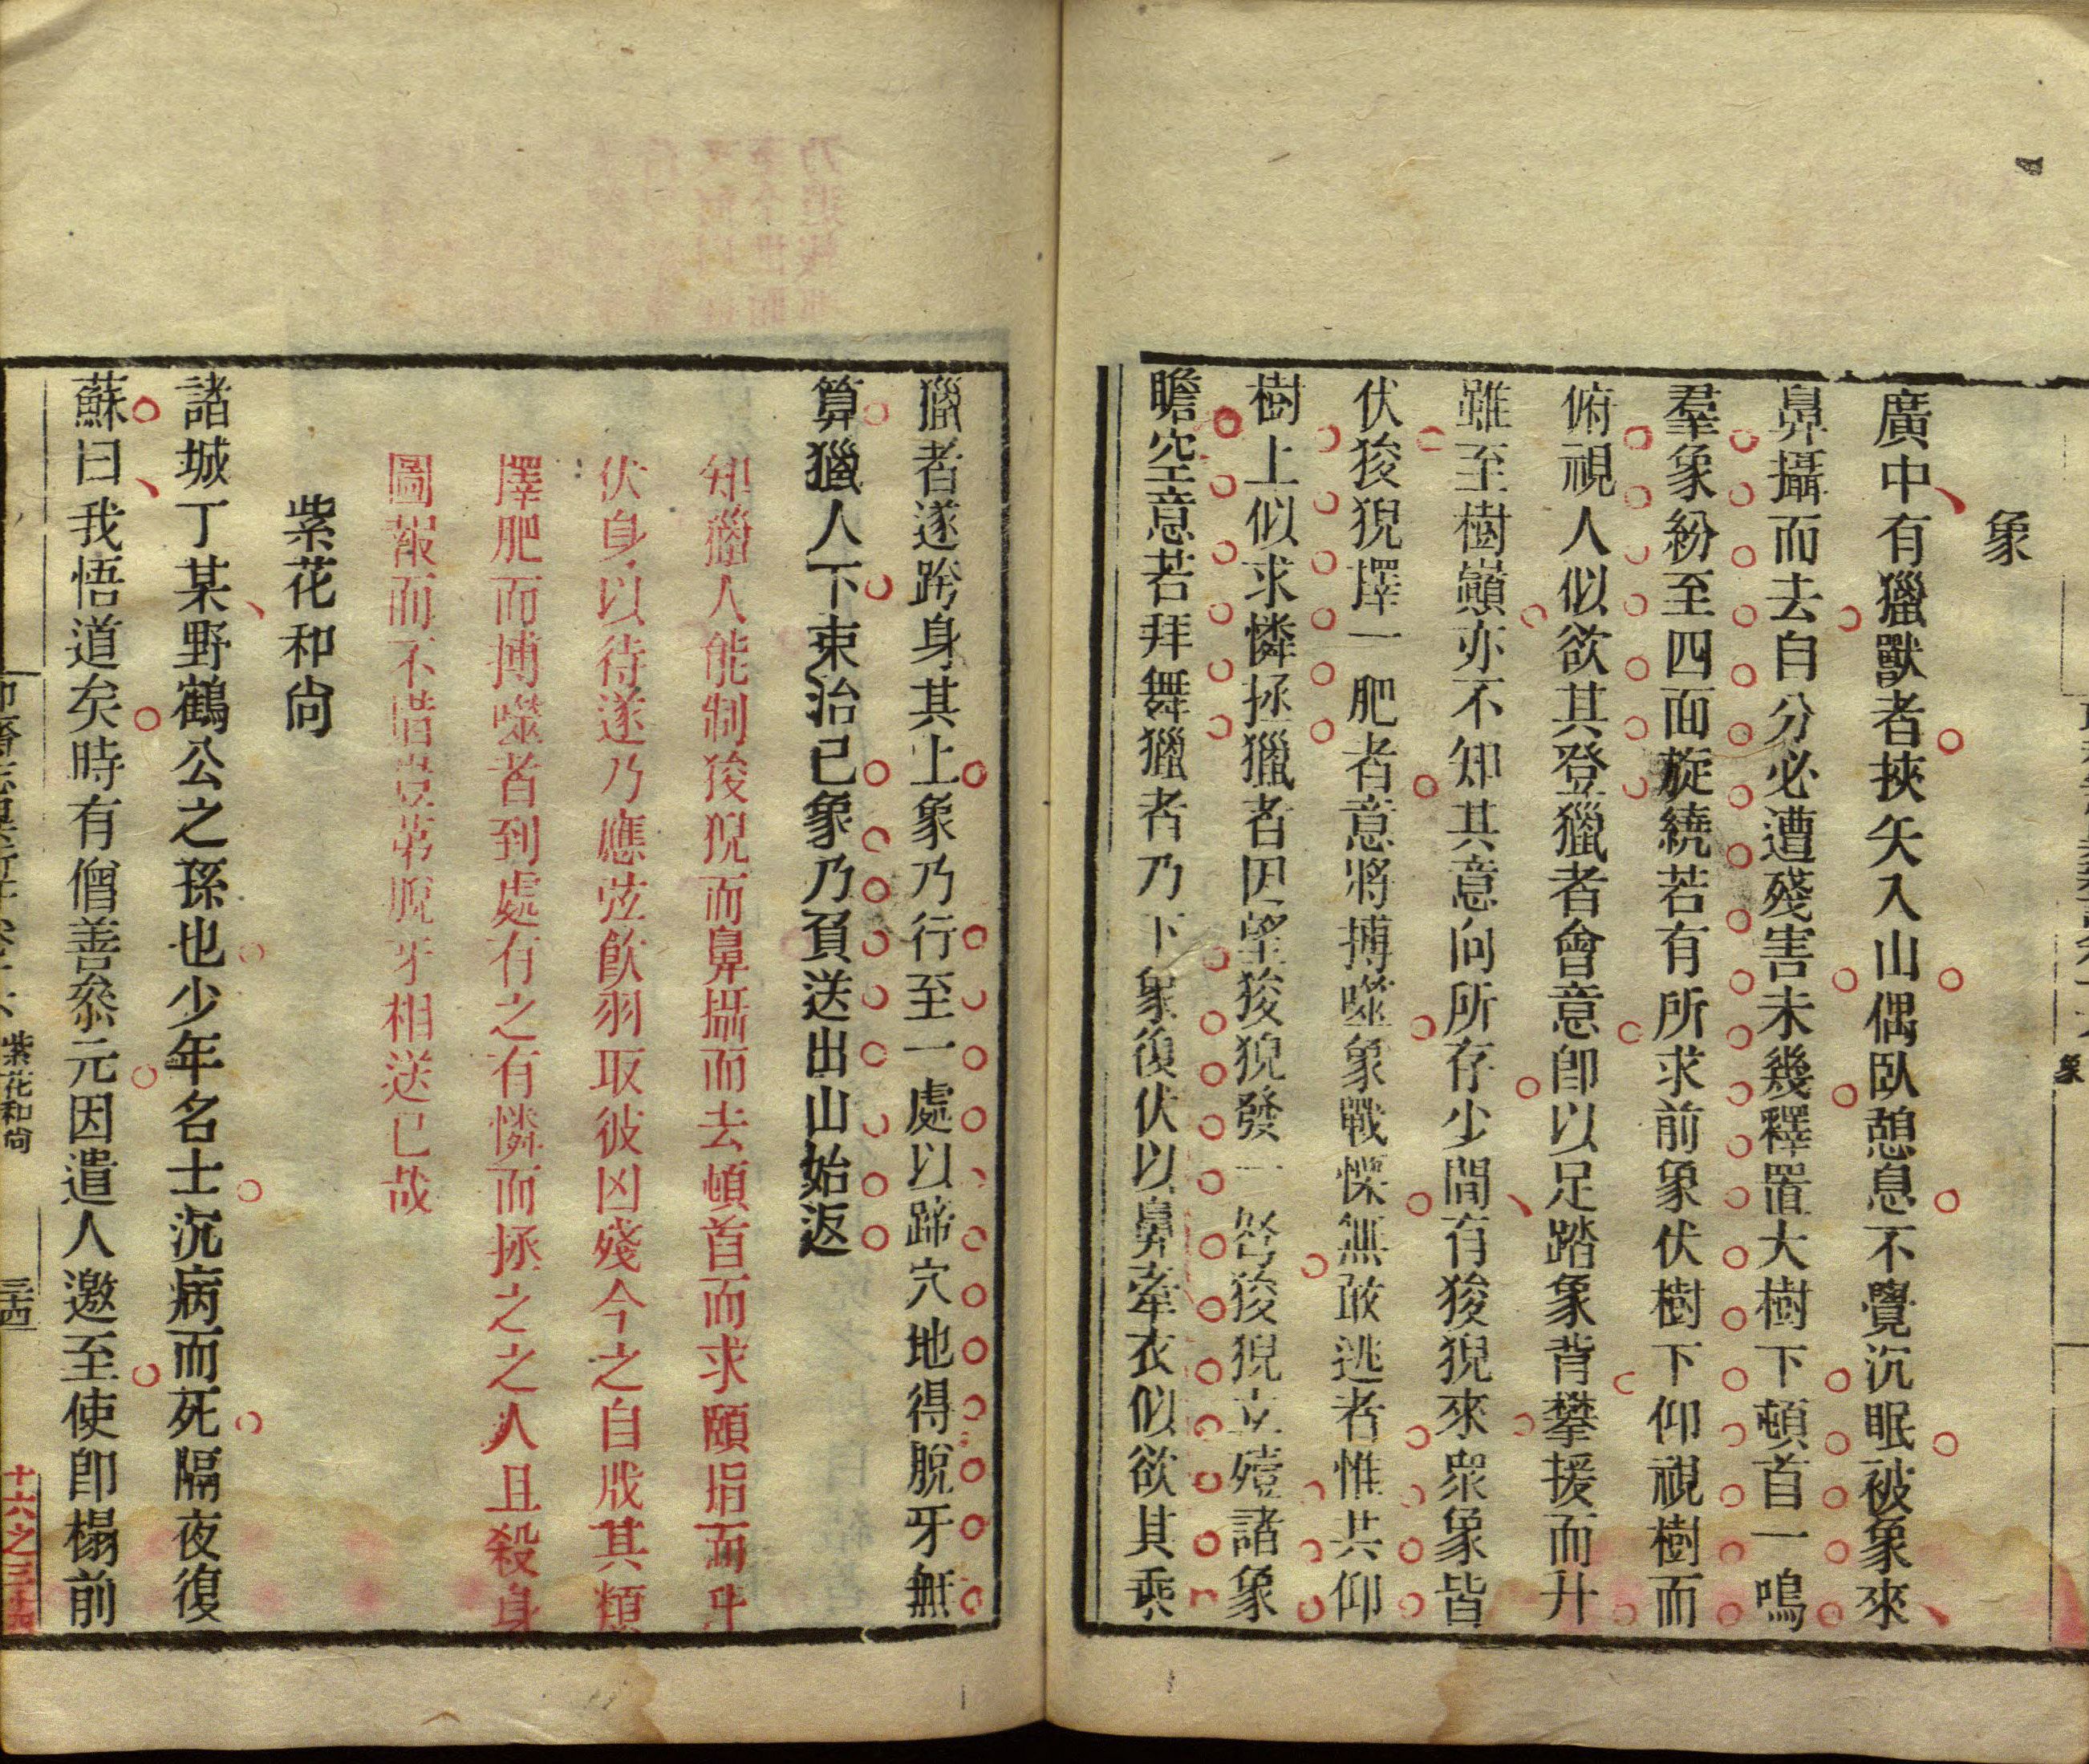 象
廣中有獵獸者挾矢入山偶臥憩息不覺沉眠被象來
鼻攝而去自分必遭殘害未幾釋置大樹下頓首一鳴
羣象紛至四面旋繞若有所求前象伏樹下仰視樹而
俯視人似欲其登獵者會意卽以足踏象背攀援而升
雖至樹巓亦不知其意向所存少間有狻猊來衆象皆
伏狻猊擇一肥者意將搏噬象戰慄無敢逃者惟共仰
樹上似求憐拯獵者因望狻猊發一弩狻猊立殪諸象
瞻空意若拜舞獵者乃下象復伏以鼻牽衣似欲其乘
獵者遂跨身其上象乃行至一處以蹄穴地得脫牙無
算獵人下束治已象乃負送出山始返
知獵人能制狻猊而鼻攝而去頓首而求頤指而升
伏身以待遂乃應弦飲羽取彼凶殘今之自戕其類
擇肥而搏噬者到處有之有憐而拯之之人且殺身
圖報而不惜豈第脫牙相送已哉
紫花和尙
諸城丁某野鶴公之孫也少年名士沉病而死隔夜復
蘇曰我悟道矣時有僧善叅元因遣人邀至使卽榻前
象
紫花和尙
三十四
十六之三十四